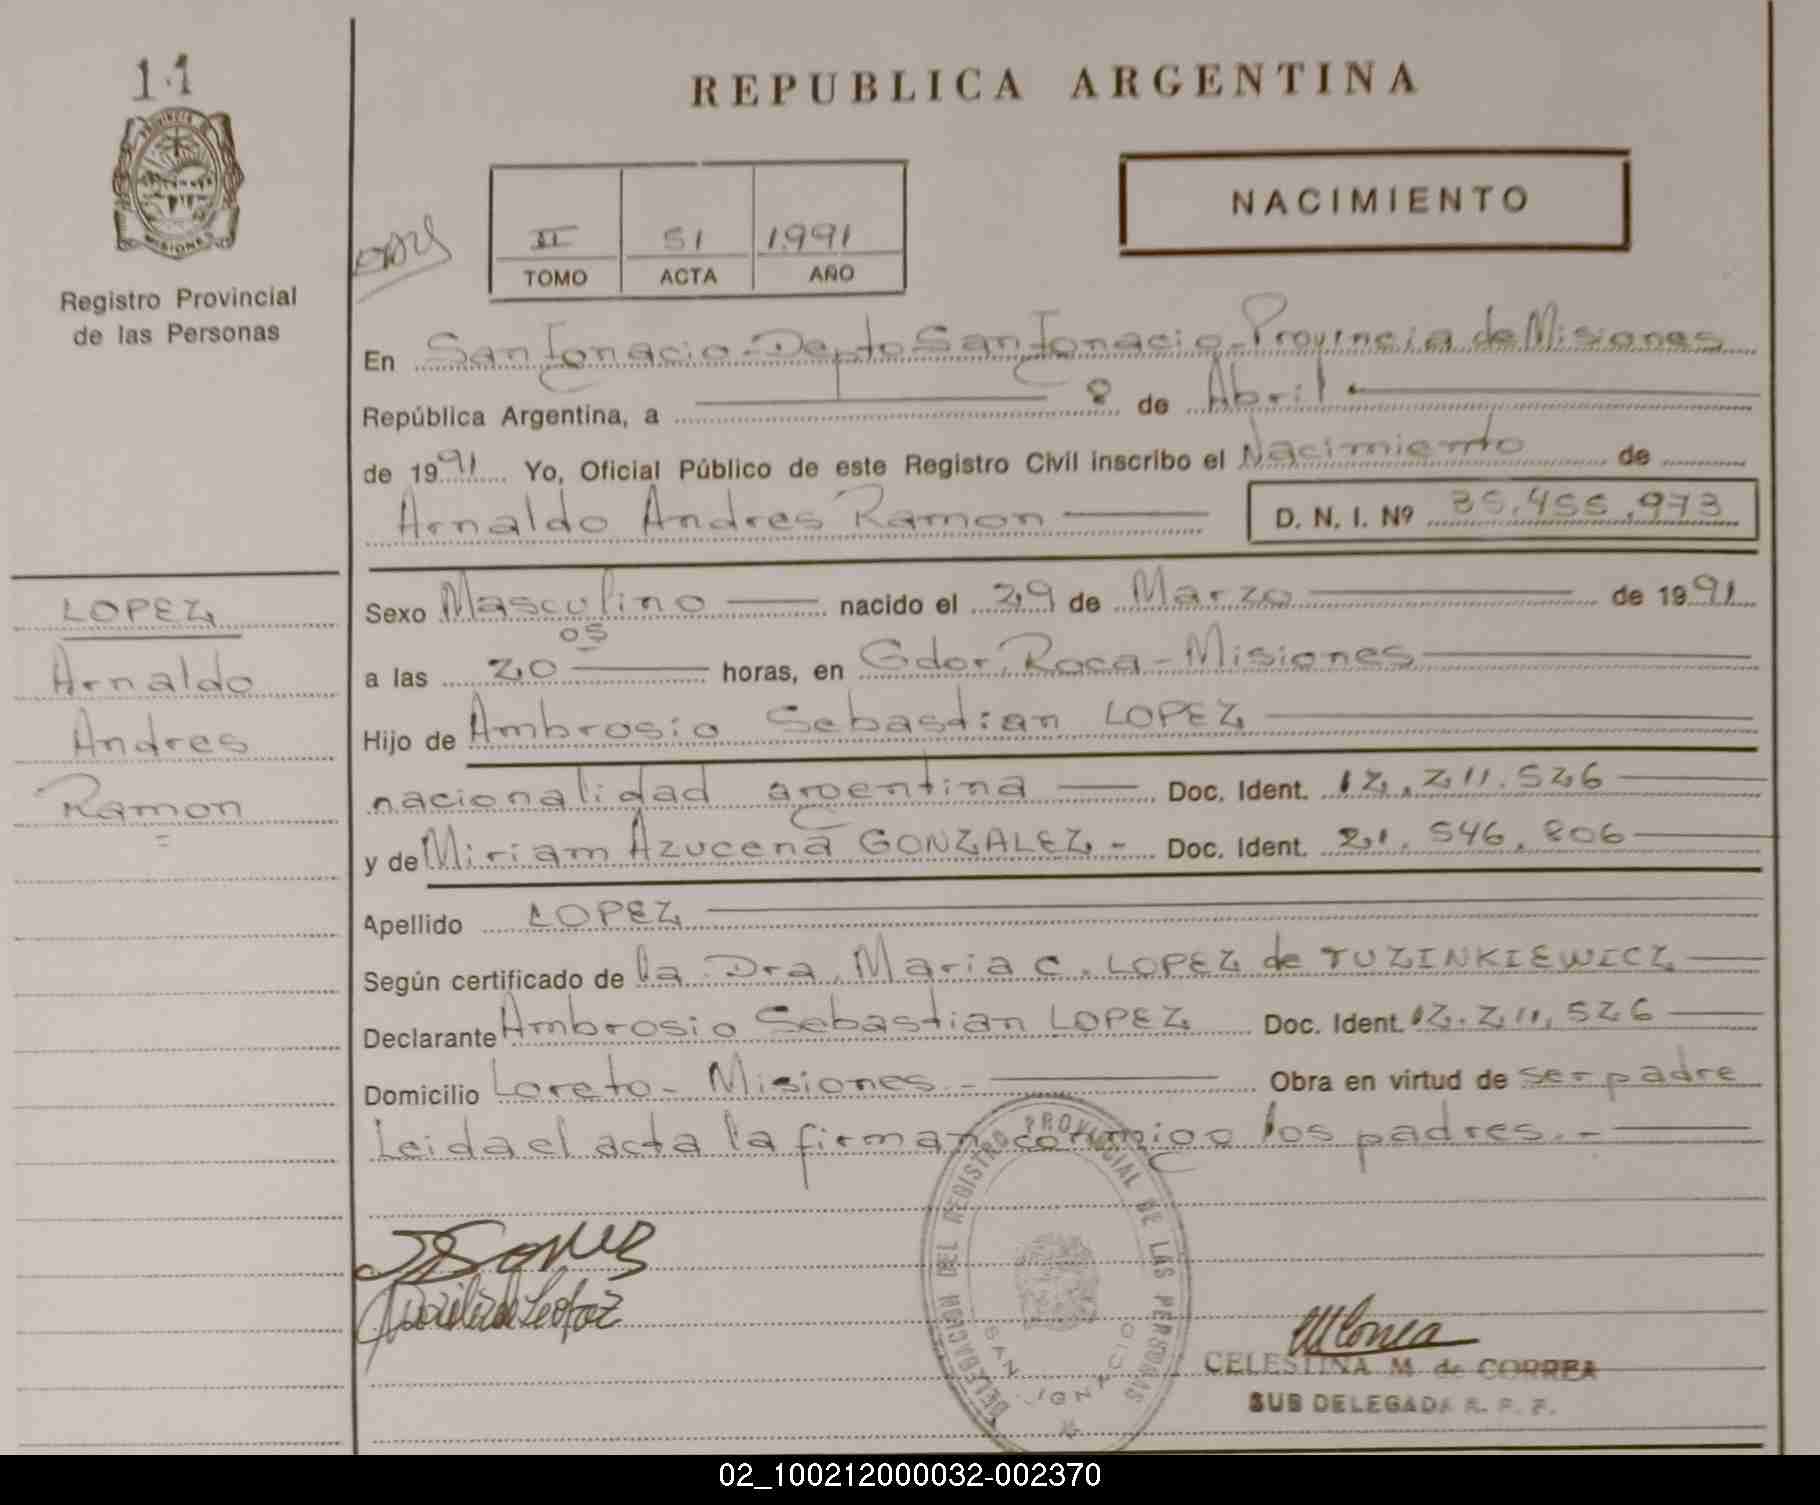 11
PROVINCIA D
MISIONES
Registro Provincial
de las Personas
REPUBLICA ARGENTINA
NACIMIENTO
II 51 1991
TOMO ACTA AÑO
En San Ignacio - Depto San Ignacio - Provincia de Misiones
República Argentina, a 8 de Abril
de 1991 Yo, Oficial Público de este Registro Civil inscribo el Nacimiento de
Arnaldo Andres Ramon D. N. I. Nº 35.455.973
LOPEZ
Arnaldo
Andres
Ramon
Sexo Masculino nacido el 29 de Marzo de 1991
a las 20 05 horas, en Gdor. Roca - Misiones
Hijo de Ambrosio Sebastian LOPEZ
nacionalidad argentina Doc. Ident. 12.211.526
y de Miriam Azucena GONZALEZ - Doc. Ident. 21.546.806
Apellido LOPEZ
Según certificado de la Dra. Maria C. LOPEZ de TUZINKIEWICZ
Declarante Ambrosio Sebastian LOPEZ Doc. Ident. 12.211.526
Domicilio Loreto - Misiones - Obra en virtud de ser padre
Leida el acta la firman conmigo los padres. -
DELEGACION DEL REGISTRO PROVINCIAL DE LAS PERSONAS
SAN IGNACIO
CELESTINA M. de CORREA
SUB DELEGADA R. P. P.
02_100212000032-002370